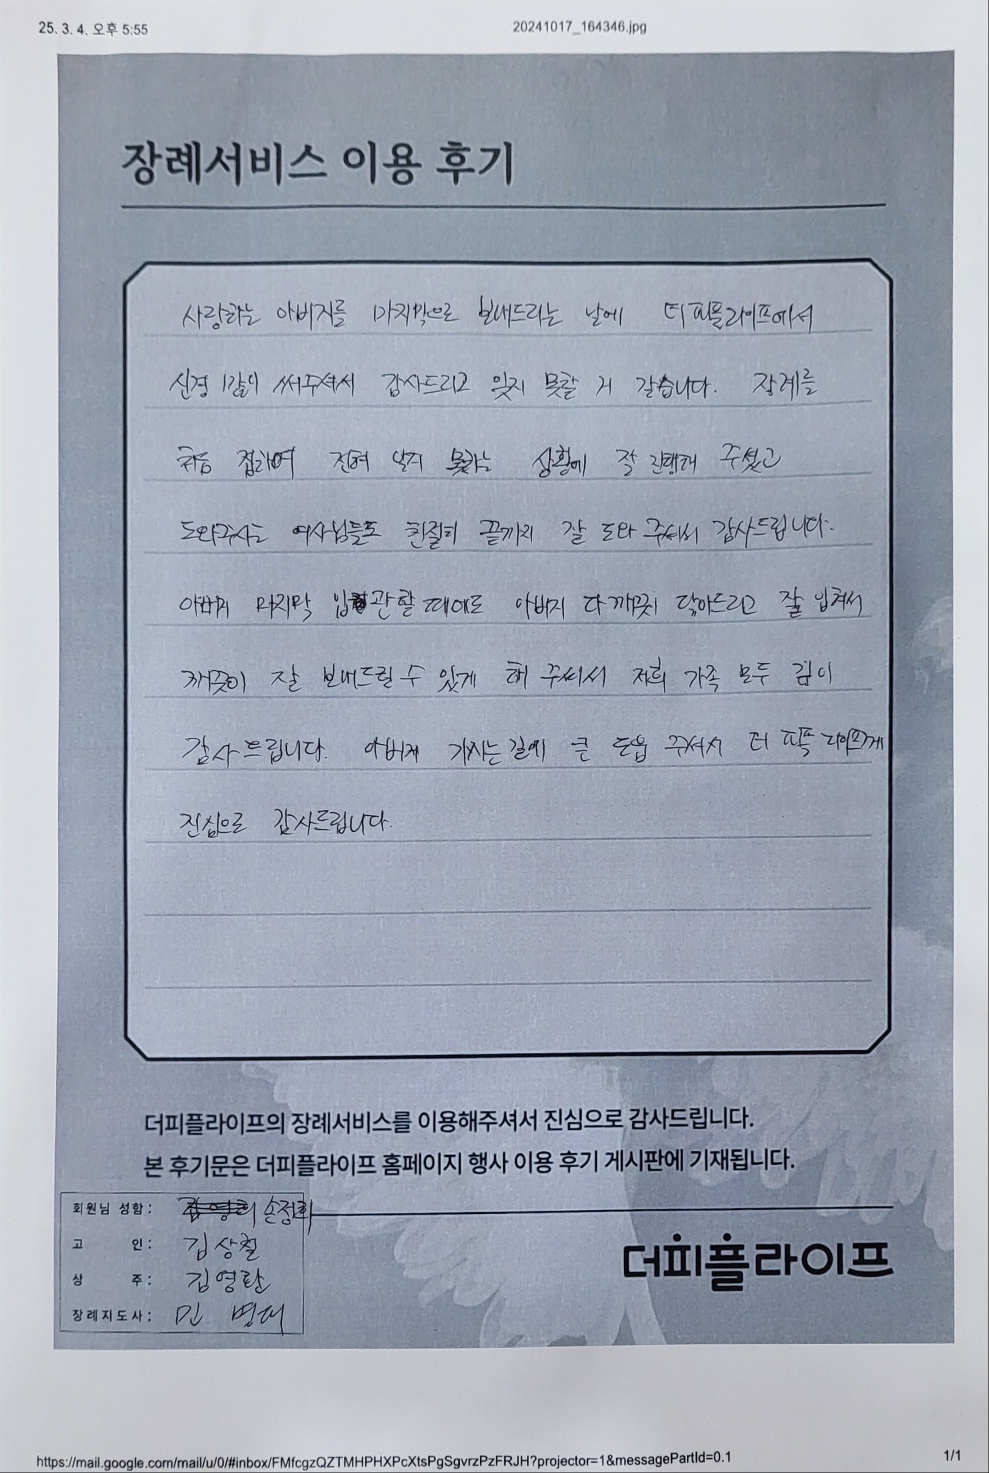 25. 3. 4. 오후 5:55
20241017_164346.jpg
장례서비스 이용 후기
사랑하는 아버지를 마지막으로 보내드리는 날에 더피플라이프에서
신경 많이 써주셔서 감사드리고 잊지 못할 거 같습니다. 장례를
처음 접하여 전혀 알지 못하는 상황에 잘 진행해 주셨고
도와주시는 여사님들도 친절히 끝까지 잘 도와 주셔서 감사드립니다.
아버지 마지막 입관할 때에도 아버지 다 깨끗히 닦아드리고 잘 입혀서
깨끗이 잘 보내드릴 수 있게 해 주셔서 저희 가족 모두 깊이
감사드립니다. 아버지 가시는 길에 큰 도움 주셔서 더 피플 라이프게
진심으로 감사드립니다.
더피플라이프의 장례서비스를 이용해주셔서 진심으로 감사드립니다.
본 후기문은 더피플라이프 홈페이지 행사 이용 후기 게시판에 기재됩니다.
회원님 성함: 손정희
고 인: 김상철
상 주: 김영란
장례지도사: 민 병대
더피플라이프
https://mail.google.com/mail/u/0/#inbox/FMfcgzQZTMHPHXPcXtsPgSgvrzPzFRJH?projector=1&messagePartId=0.1
1/1